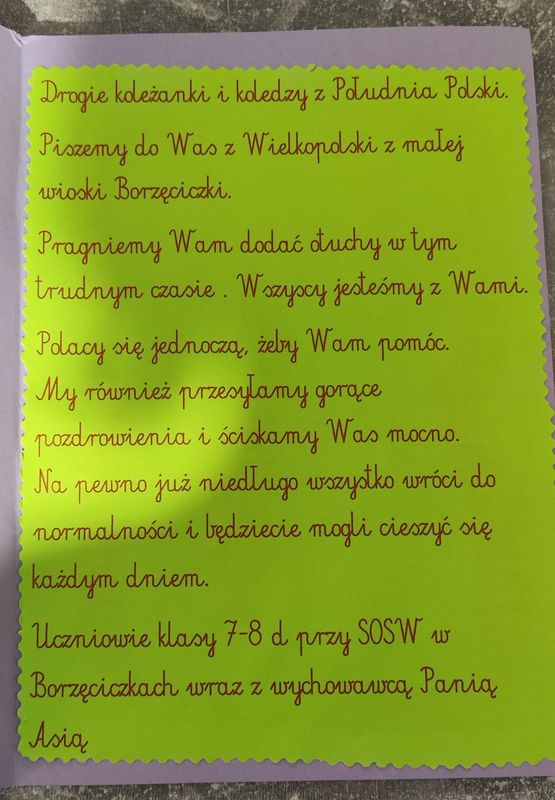 Drogie koleżanki i koledzy z Południa Polski.
Piszemy do Was z Wielkopolski z małej
wioski Borzęciczki.
Pragniemy Wam dodać otuchy w tym
trudnym czasie . Wszyscy jesteśmy z Wami.
Polacy się jednoczą, żeby Wam pomóc.
My również przesyłamy gorące
pozdrowienia i ściskamy Was mocno.
Na pewno już niedługo wszystko wróci do
normalności i będziecie mogli cieszyć się
każdym dniem.
Uczniowie klasy 7-8 d przy SOSW w
Borzęciczkach wraz z wychowawcą Panią
Asią